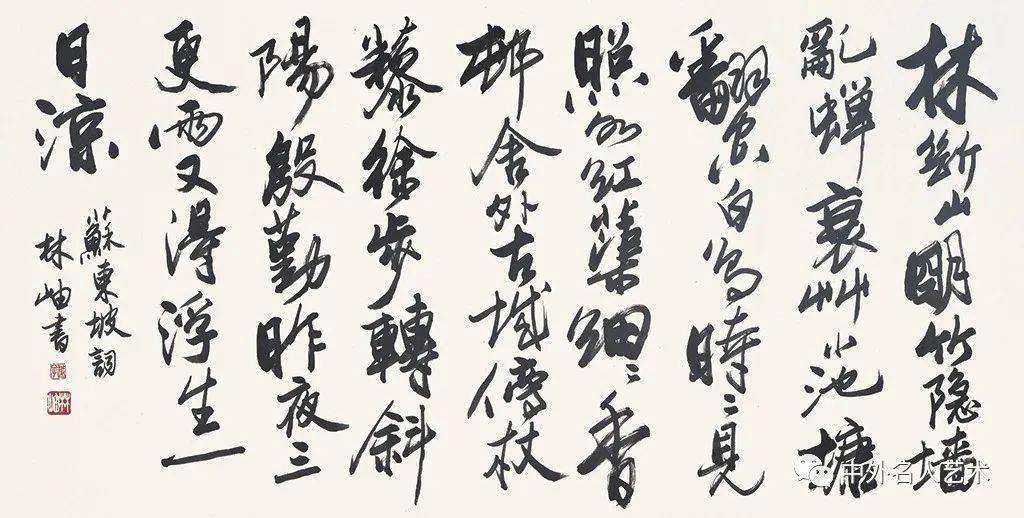 林斷山明竹隐墙
亂蝉衰艸小池塘
翻空白鳥時〻見
照水紅蕖細〻香
邨舍外古城傍杖
藜徐步轉斜
陽殷勤昨夜三
更雨又得浮生一
日涼
蘇東坡詞
林岫書
中外名人艺术